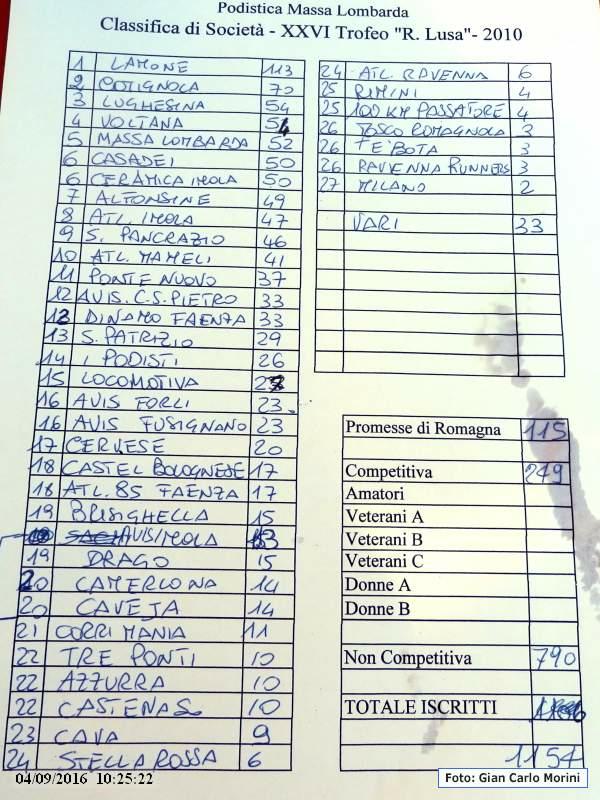 Podistica Massa Lombarda
Classifica di Società - XXVI Trofeo "R. Lusa"- 2010
1 LAMONE 113
2 COTIGNOLA 70
3 LUGHESINA 54
4 VOLTANA 54
5 MASSA LOMBARDA 52
6 CASADEI 50
6 CERAMICA IMOLA 50
7 ALFONSINE 49
8 ATL. IMOLA 47
9 S. PANCRAZIO 46
10 ATL. MAMELI 41
11 PONTE NUOVO 37
12 AVIS. C.S. PIETRO 33
12 DINAMO FAENZA 33
13 S. PATRIZIO 29
14 I PODISTI 26
15 LOCOMOTIVA
16 AVIS FORLI 23
16 AVIS FUSIGNANO 23
17 CERVESE 20
18 CASTEL BOLOGNESE 17
18 ATL. 85 FAENZA 17
19 BRISIGHELLA 15
AVIS IMOLA
19 DRAGO 15
20 CAMERLONA 14
20 CAVEJA 14
21 CORRI MANIA 11
22 TRE PONTI 10
22 AZZURRA 10
22 CASTENASO 10
23 CAVA 9
24 STELLA ROSSA 6
24 ATL. RAVENNA 6
25 RIMINI 4
25 100 KM PASSATORE 4
26 TOSCO ROMAGNOLA 3
26 TE BOTA 3
26 RAVENNA RUNNERS 3
27 MILANO 2
VARI 33
Promesse di Romagna 115
Competitiva 249
Amatori
Veterani A
Veterani B
Veterani C
Donne A
Donne B
Non Competitiva 790
TOTALE ISCRITTI
1154
04/09/2016 10:25:22
Foto: Gian Carlo Morini